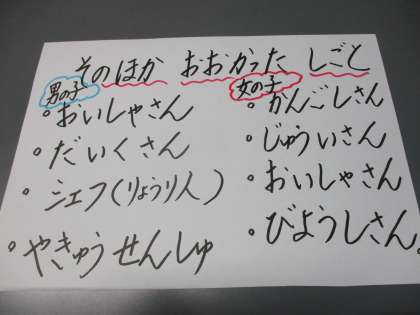 そのほか おおかった しごと
男の子
おいしゃさん
だいくさん
シェフ(りょうりん)
やきゅうせんしゅ
女の子
かんごしさん
じゅういさん
おいしゃさん
びようしさん